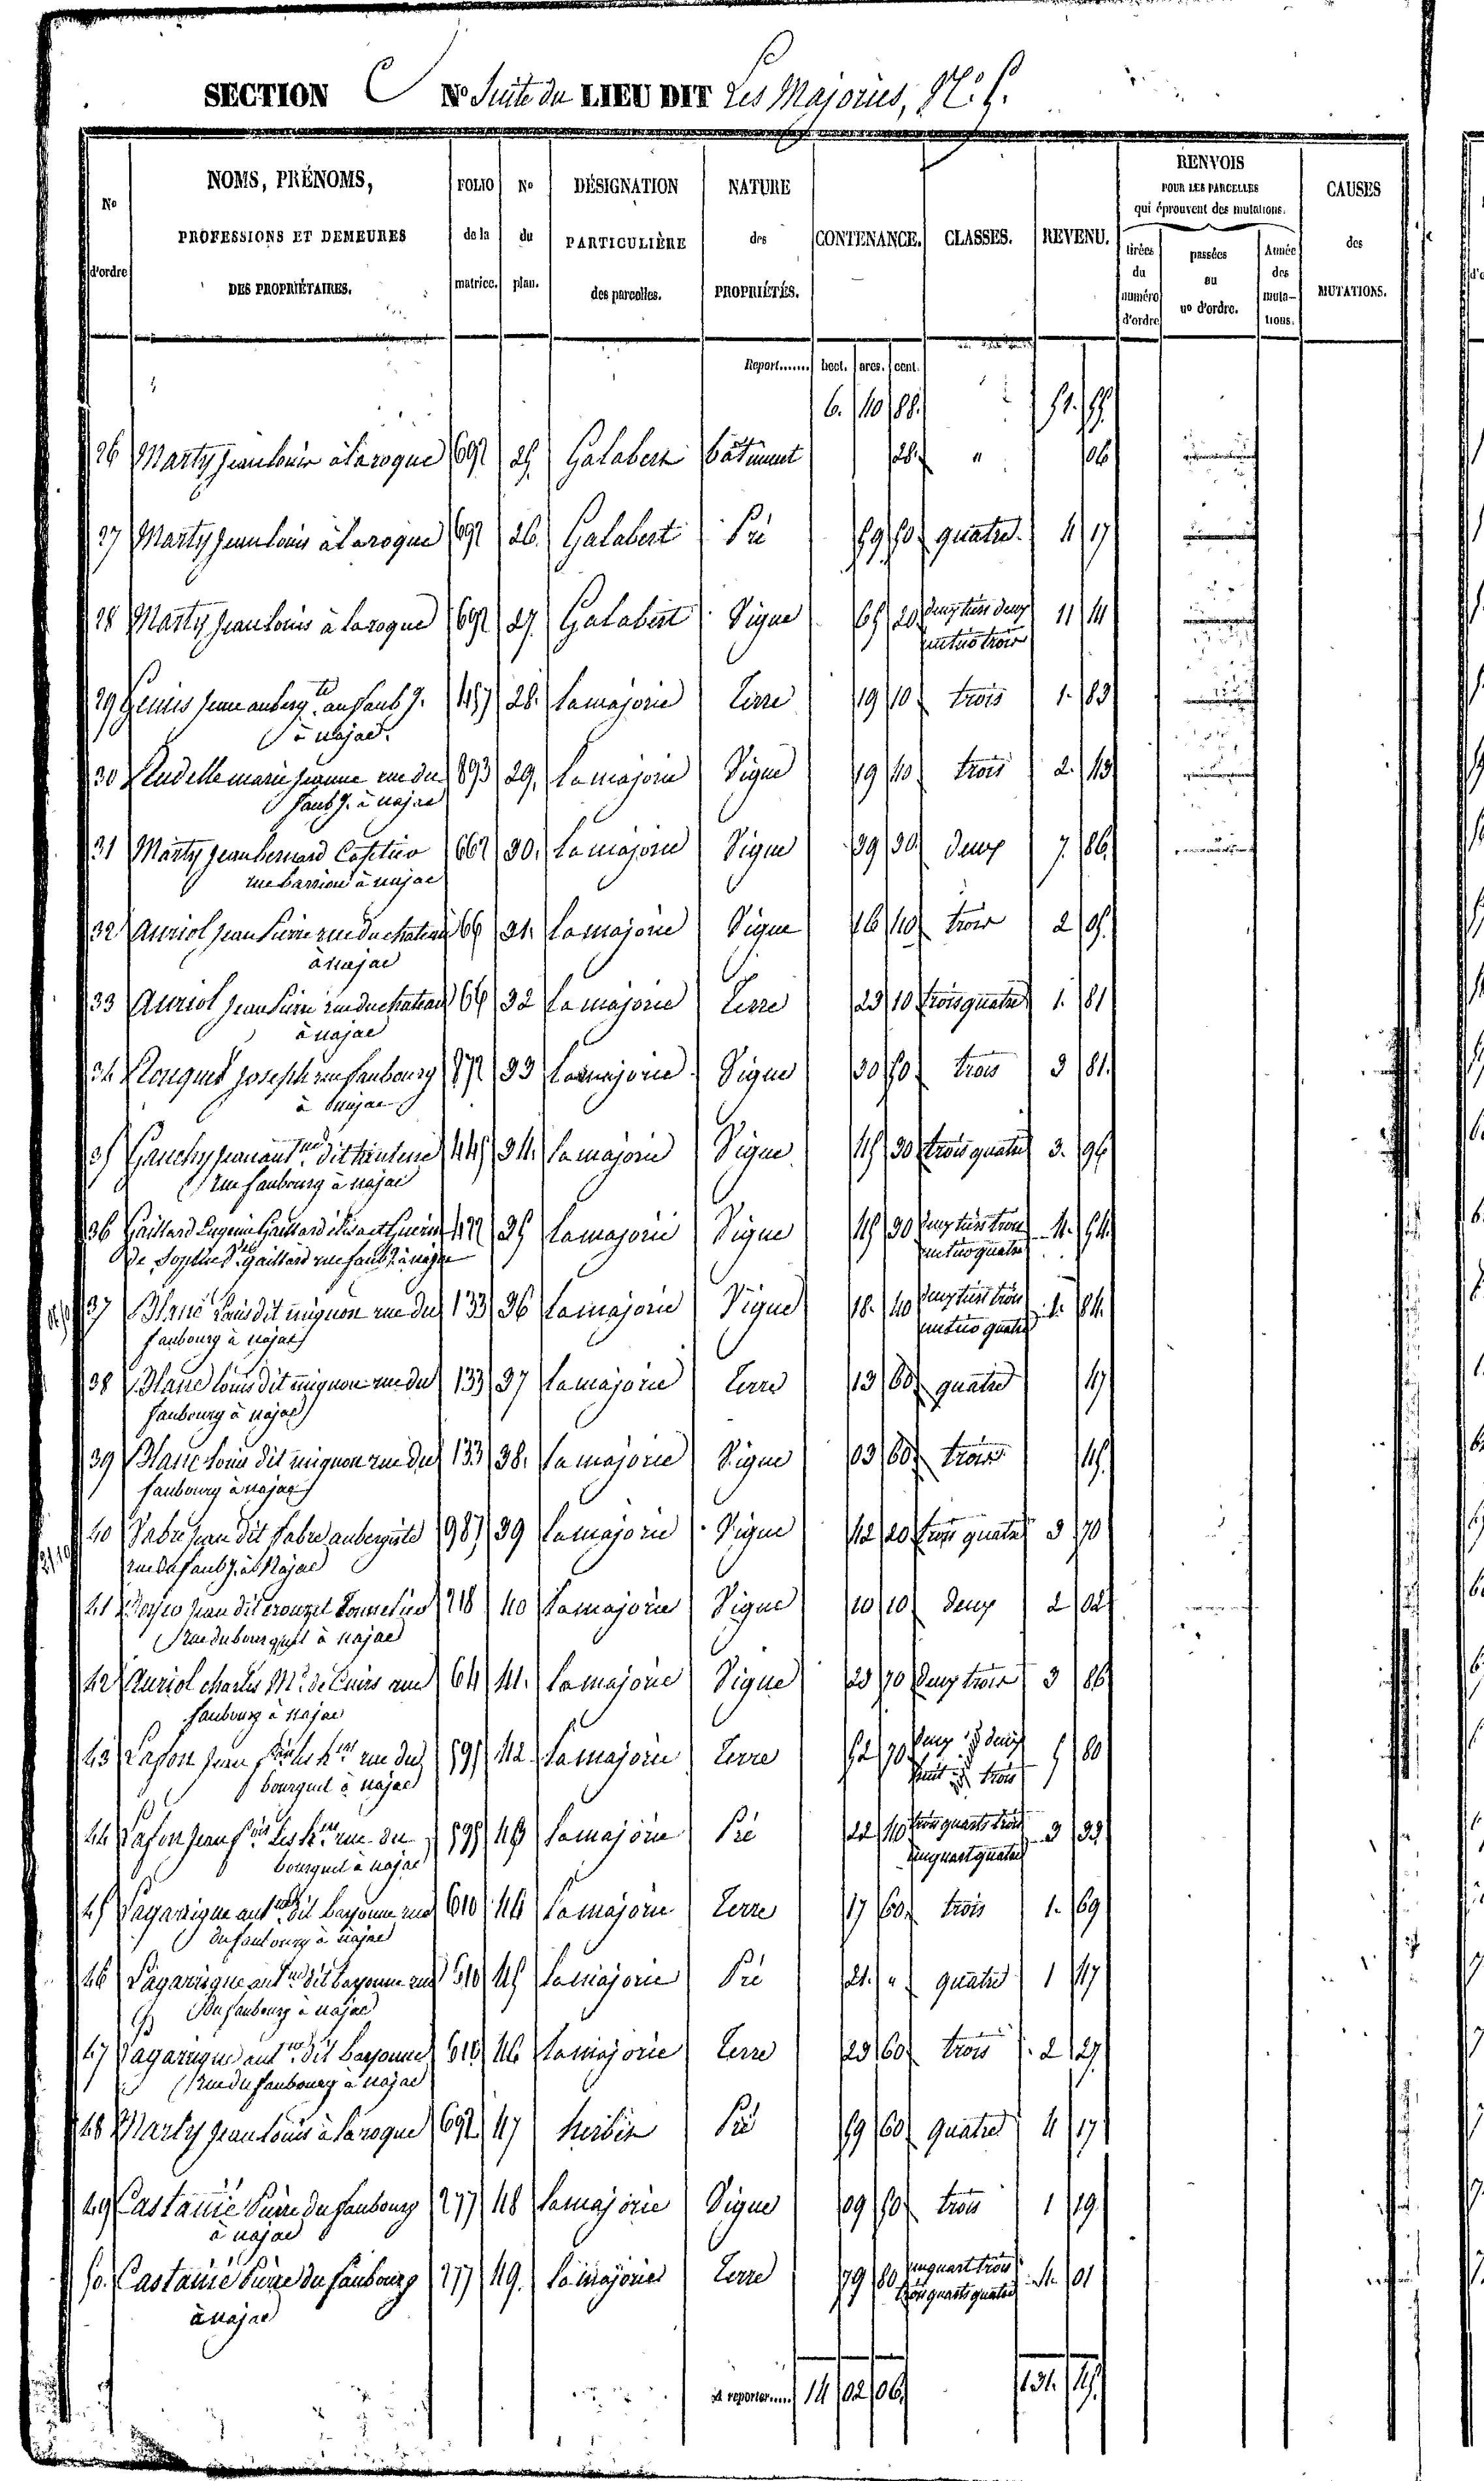 SECTION C No Suite du LIEU DIT Les Majories, N.º 5.
No d'ordre
NOMS, PRÉNOMS, PROFESSIONS ET DEMEURES DES PROPRIÉTAIRES.
FOLIO de la matrice.
No du plan.
DÉSIGNATION PARTICULIÈRE des parcelles.
NATURE des PROPRIÉTÉS.
CONTENANCE.
CLASSES.
REVENU.
RENVOIS POUR LES PARCELLES qui éprouvent des mutations.
tirées du numéro d'ordre
passées au no d'ordre.
Année des mutations.
CAUSES des MUTATIONS.
Report....... hect. ares. cent.
6. 40 88. 51. 55
26 Marty Jean louis à laroque 692 25 Galabert bâtiment 28. " 06
27 Marty Jean louis à laroque 692 26. Galabert Pré 59 50 quatre 4 17
28 Marty Jean louis à laroque 692 27. Galabert Vigne 65 20 deux tiers deux 11 41
un tiers trois
29 Genies Jeanne auberg.te au faub.g 457 28. la majorie Terre 19 10 trois 1. 83
à najac.
30 Rudelle marie jeanne rue du 893 29. la majorie Vigne 19 40 trois 2. 43
faub.g à najac
31 Marty Jean bernard Cafetier 662 30. la majorie Vigne 39 30 deux 7. 86
rue barriou à najac
32 Auriol Jean Pierre rue du chateau 66 31. la majorie Vigne 16 40 trois 2 05.
à najac
33 Auriol Jean Pierre rue du chateau 66 32 la majorie Terre 23 10 trois quatre 1. 81
à najac
34 Rouquet Joseph rue faubourg 872 33 la majorie Vigne 30 50 trois 3 81.
à najac
35 Gauchy Jean ant.ne dit 445 34. la majorie Vigne 45 30 trois quatre 3. 96
rue faubourg à najac
36 Gaillard Eugenie Gaillard et 422 35 la majorie Vigne 45 30 deux tiers trois 4. 54.
de Sophie Gaillard rue faub.g à najac un tiers quatre
37 Blanc louis dit mignon rue du 133 36 la majorie Vigne 18. 40 deux tiers trois 1. 84.
faubourg à najac un tiers quatre
38 Blanc louis dit mignon rue du 133 37 la majorie Terre 13 60 quatre 47
faubourg à najac
39 Blanc louis dit mignon rue du 133 38. la majorie Vigne 03 60 trois 45.
faubourg à najac
40 Vabre jean dit fabre aubergiste 987 39 la majorie Vigne 42 20 trois quatre 3 70
rue du faub.g à Najac
41 jean dit crouzet 218 40 la majorie Vigne 10 10 deux 2 02
rue du bourguet à najac
42 Auriol charles M.d de Cuirs rue 64 41. la majorie Vigne 23 70 deux trois 3 86
faubourg à najac
43 Lafon Jean f.ois les h.ers rue du 595 42 la majorie Terre 52 70 deux deux 5 80
bourguet à najac huit trois
44 Lafon Jean f.ois les h.ers rue du 595 43 la majorie Pré 22 40 trois quarts trois 3 32.
bourguet à najac un quart quatre
45 Lagarrigue ant.ne dit bayonne rue 610 44 la majorie Terre 17 60 trois 1. 69
du faubourg à najac
46 Lagarrigue ant.ne dit bayonne rue 610 45 la majorie Pré 21. " quatre 1 47
du faubourg à najac
47 Lagarrigue ant.ne dit bayonne 610 46 la majorie Terre 23 60 trois 2 27
rue du faubourg à najac
48 Marty Jean louis à laroque 692 47 herbès Pré 59 60 quatre 4 17
49 Castanié Pierre du faubourg 277 48 la majorie Vigne 09 50 trois 1 19.
à najac
50. Castanié Pierre du faubourg 277 49. la majorie Terre 79 80 un quart trois 4. 01
à najac trois quarts quatre
A reporter..... 14 02 06 131. 45.